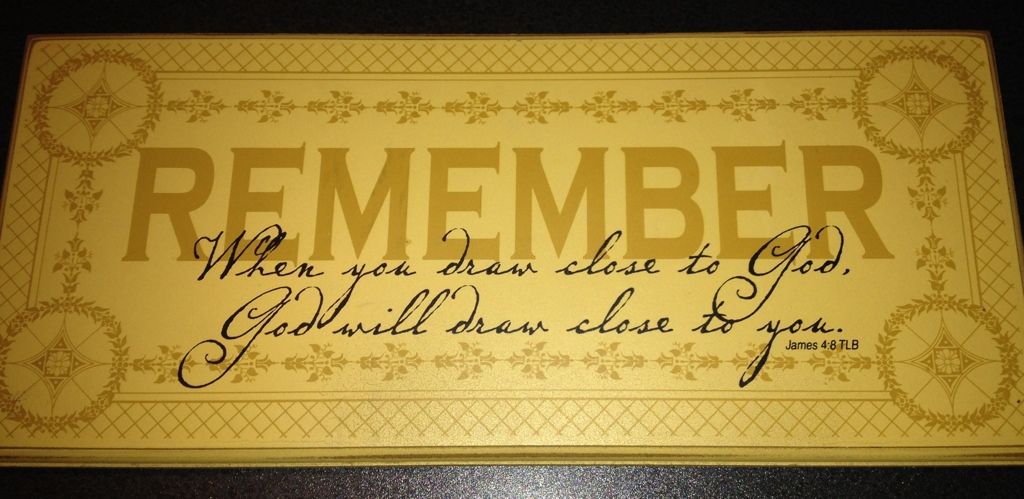 REMEMBER
When you draw close to God,
God will draw close to you.
James 4:8 TLB